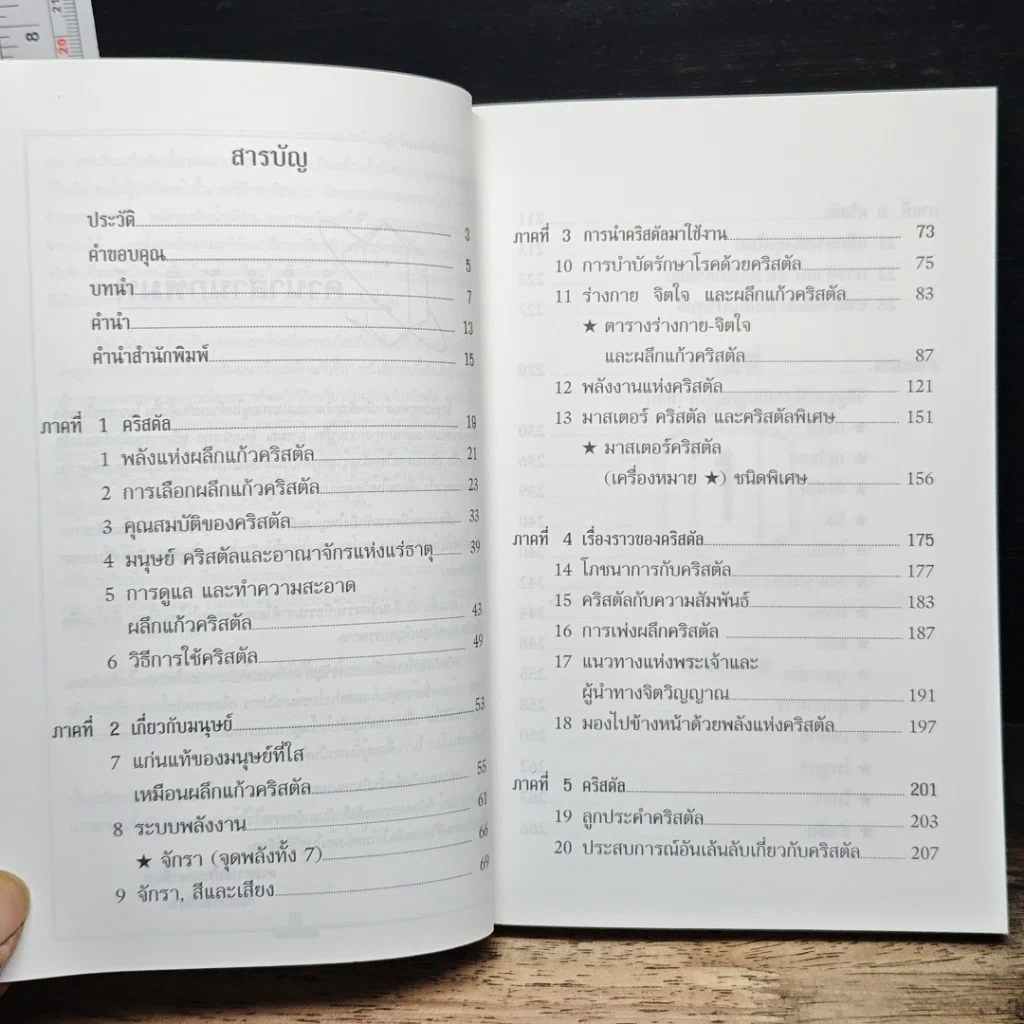 8
20
21
สารบัญ
ประวัติ 3
คำขอบคุณ 5
บทนำ 7
คำนำ 13
คำนำสำนักพิมพ์ 15
ภาคที่ 1 คริสตัล 19
1 พลังแห่งผลึกแก้วคริสตัล 21
2 การเลือกผลึกแก้วคริสตัล 23
3 คุณสมบัติของคริสตัล 33
4 มนุษย์ คริสตัลและอาณาจักรแห่งแร่ธาตุ 39
5 การดูแล และทำความสะอาด
ผลึกแก้วคริสตัล 43
6 วิธีการใช้คริสตัล 49
ภาคที่ 2 เกี่ยวกับมนุษย์ 53
7 แก่นแท้ของมนุษย์ที่ใส
เหมือนผลึกแก้วคริสตัล 55
8 ระบบพลังงาน 61
★ จักรา (จุดพลังทั้ง 7) 66
9 จักรา, สีและเสียง 69
ภาคที่ 3 การนำคริสตัลมาใช้งาน 73
10 การบำบัดรักษาโรคด้วยคริสตัล 75
11 ร่างกาย จิตใจ และผลึกแก้วคริสตัล 83
★ ตารางร่างกาย-จิตใจ
และผลึกแก้วคริสตัล 87
12 พลังงานแห่งคริสตัล 121
13 มาสเตอร์ คริสตัล และคริสตัลพิเศษ 151
★ มาสเตอร์คริสตัล
(เครื่องหมาย ★) ชนิดพิเศษ 156
ภาคที่ 4 เรื่องราวของคริสตัล 175
14 โภชนาการกับคริสตัล 177
15 คริสตัลกับความสัมพันธ์ 183
16 การเพ่งผลึกคริสตัล 187
17 แนวทางแห่งพระเจ้าและ
ผู้นำทางจิตวิญญาณ 191
18 มองไปข้างหน้าด้วยพลังแห่งคริสตัล 197
ภาคที่ 5 คริสตัล 201
19 ลูกประคำคริสตัล 203
20 ประสบการณ์อันเล้นลับเกี่ยวกับคริสตัล 207